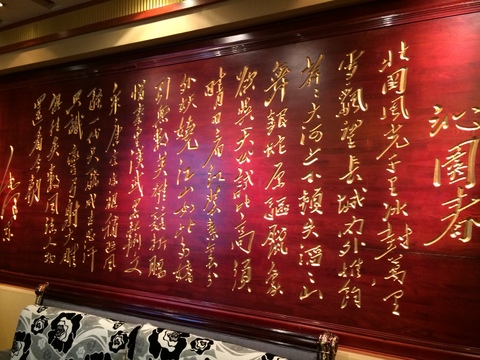 沁園春
北國風光千里冰封萬里
雪飄望長城內外惟餘
莽莽大河上下頓失滔滔山
舞銀蛇原驅臘象
欲與天公試比高須
晴日看紅裝素裹分
外妖嬈江山如此多嬌
引無數英雄競折腰
惜秦皇漢武略輸文
采唐宗宋祖稍遜風
騷一代天驕成吉思汗
只識彎弓射大雕
俱往矣數風流人物
還看今朝
毛澤東